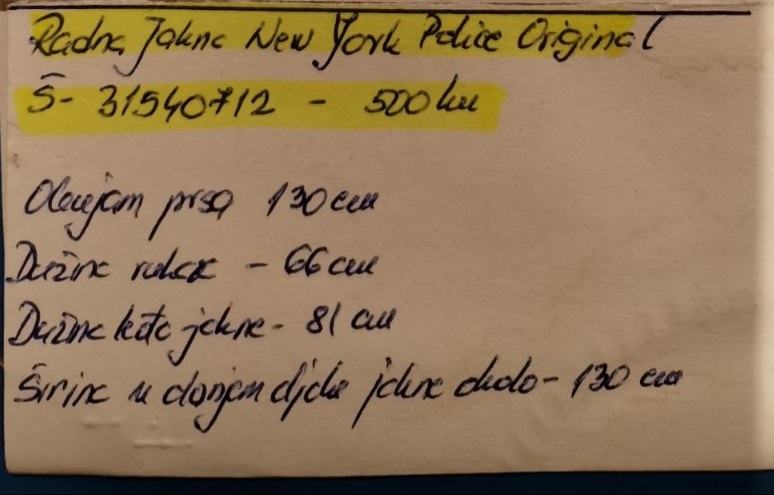 Radna Jakna New York Police Original
Š- 31540712 - 500 kn
Obujam prsa 130 cm
Dužina rukava - 66 cm
Dužina leđa jakne - 81 cm
Širina u donjem djelu jakne okolo - 130 cm